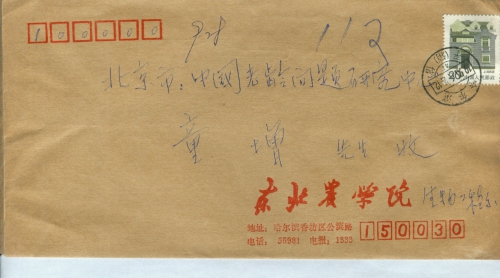 100000
113
北京市:中国老龄问题研究中心
童增 先生 收
东北农学院 生物工程系
地址:哈尔滨香坊区公滨路
电话:35981 电报:1533
150030